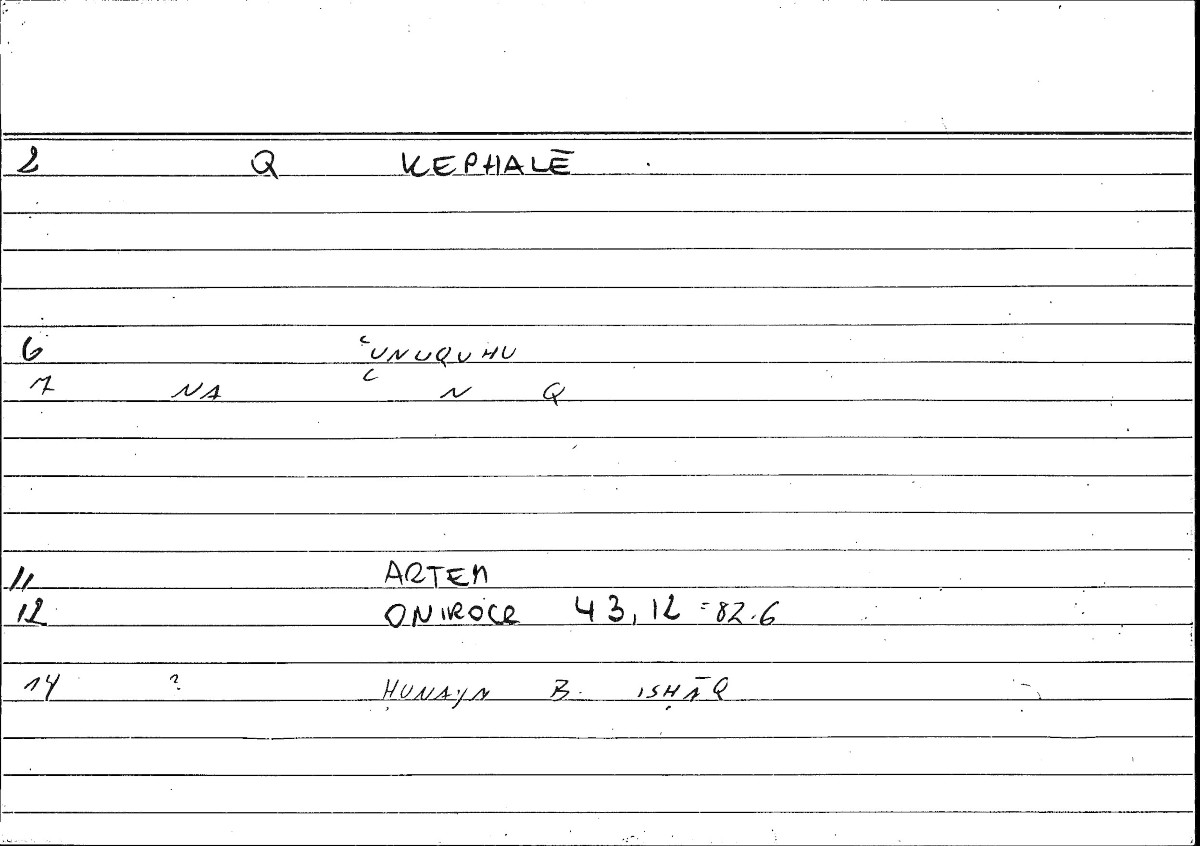 2 Q KEPHALĒ
6 ʿUNUQUHU
7 NA ʿ N Q
11 ARTEM
12 ONIROCR 43,12 =82.6
14 ? ḤUNAYN B. ISḤĀQ